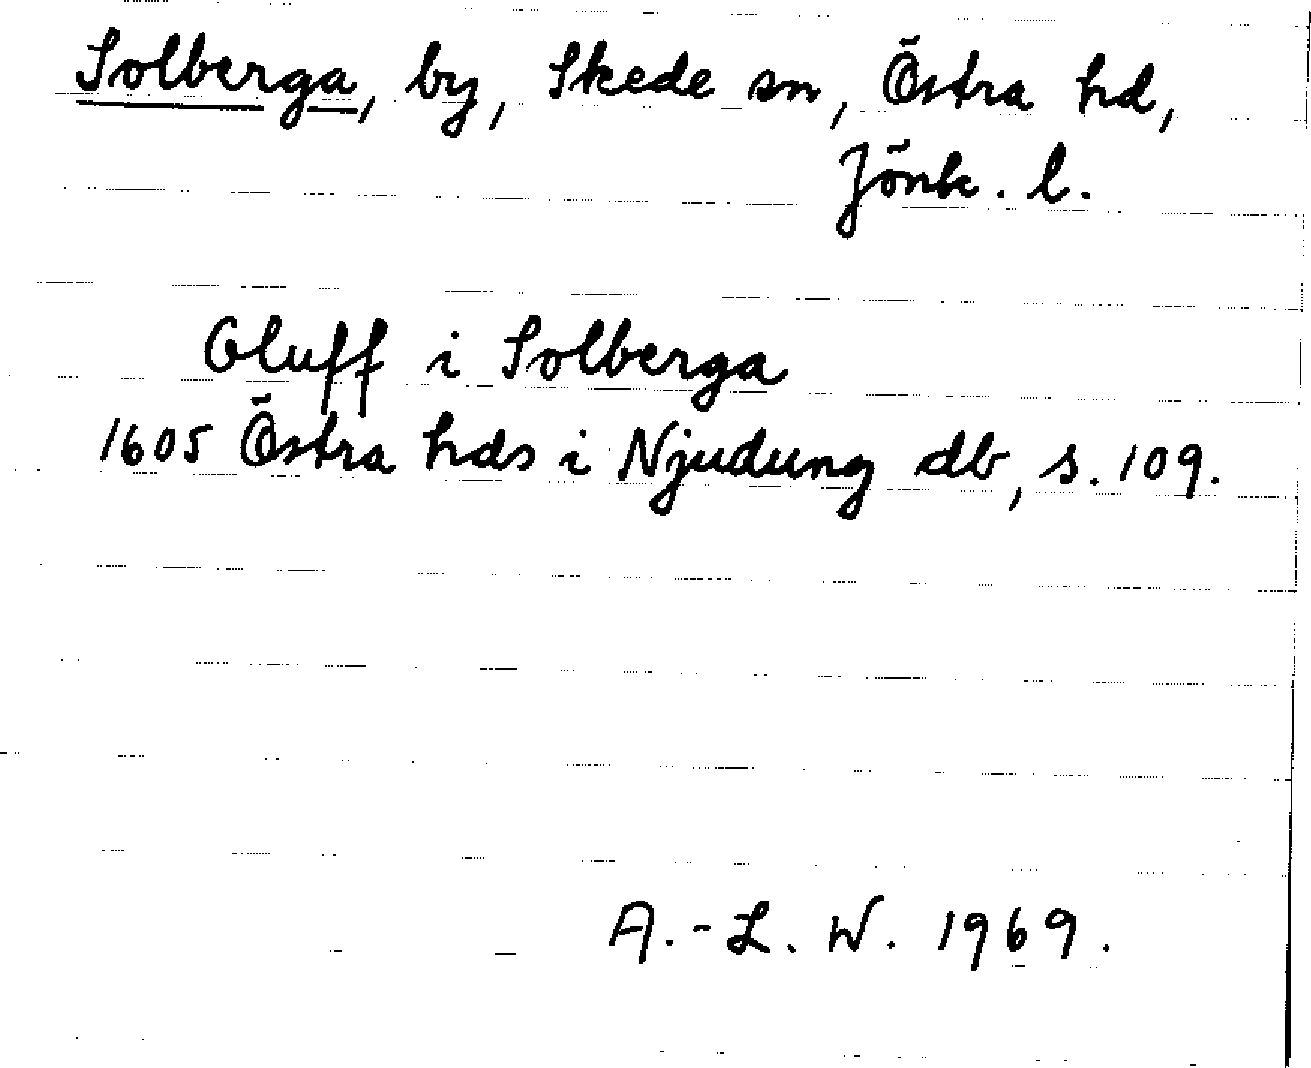 Solberga, by, Skede sn, Östra hd,
Jönk. l.
Oluff i Solberga
1605 Östra hds i Njudung db, s. 109.
A.-L. W. 1969.